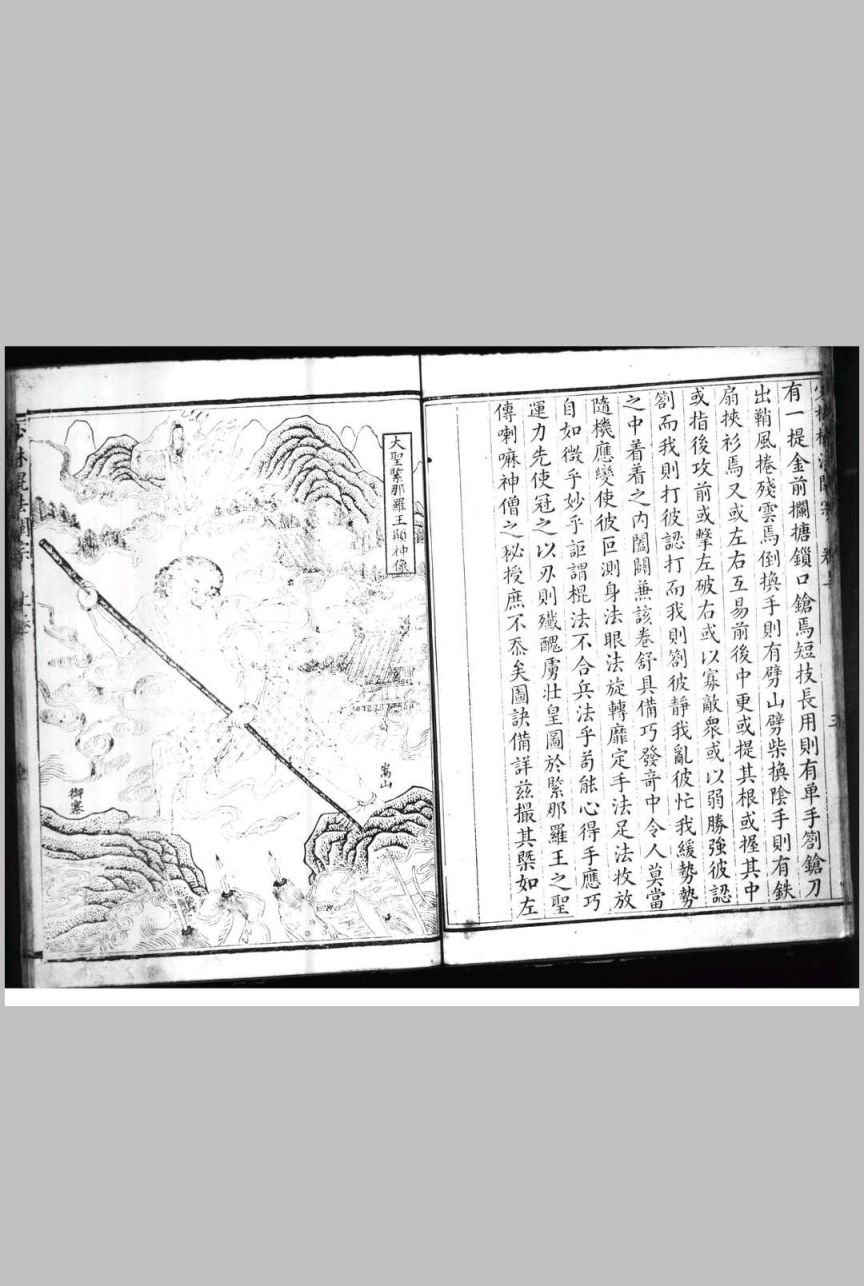 少林棍法闡宗 卷上
三
有一提金前攔搪鎖口鎗焉短技長用則有單手劄鎗刀
出鞘風捲殘雲焉倒換手則有劈山劈柴換陰手則有鉄
扇挾衫焉又或左右互易前後中更或提其根或握其中
或指後攻前或擊左破右或以寡敵衆或以弱勝強彼認
劄而我則打彼認打而我則劄彼靜我亂彼忙我緩勢勢
之中着着之内闔闢兼該卷舒具備巧發竒中令人莫當
隨機應變使彼叵測身法眼法旋轉靡定手法足法收放
自如微乎妙乎詎謂棍法不合兵法乎苟能心得手應巧
運力先使冦之以刃則殲醜虜壯皇圖於緊那羅王之聖
傳喇嘛神僧之秘授庶不忝矣圖訣備詳兹撮其槩如左
大聖緊那羅王顯神像
嵩山
御寨
少林棍法闡宗